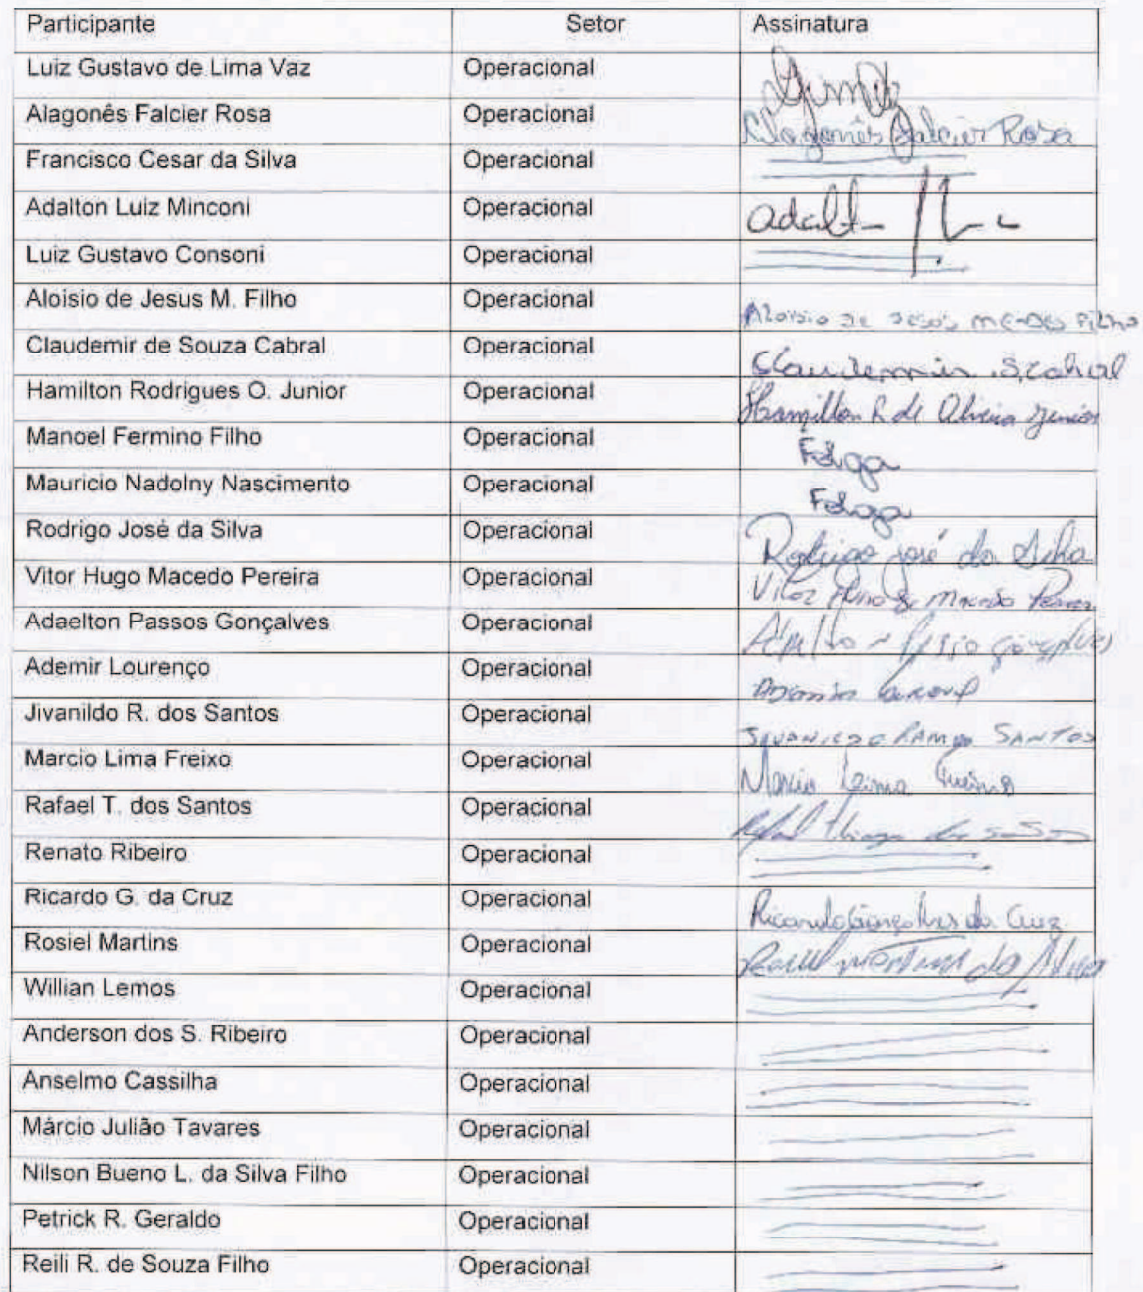 Participante Setor Assinatura
Luiz Gustavo de Lima Vaz Operacional
Alagonês Falcier Rosa Operacional Alagonês Falcier Rosa
Francisco Cesar da Silva Operacional
Adalton Luiz Minconi Operacional Adalt
Luiz Gustavo Consoni Operacional
Aloisio de Jesus M. Filho Operacional Aloisio de Jesus Mendes Filho
Claudemir de Souza Cabral Operacional Claudemir S. Cabral
Hamilton Rodrigues O. Junior Operacional Hamilton R de Oliveira Junior
Manoel Fermino Filho Operacional Folga
Mauricio Nadolny Nascimento Operacional Folga
Rodrigo José da Silva Operacional Rodrigo José da Silva
Vitor Hugo Macedo Pereira Operacional Vitor Hugo de Macedo
Adaelton Passos Gonçalves Operacional Gonçalves
Ademir Lourenço Operacional Ademir
Jivanildo R. dos Santos Operacional Jivanildo Ramos Santos
Marcio Lima Freixo Operacional Marcio Lima
Rafael T. dos Santos Operacional Rafael Thiago dos Santos
Renato Ribeiro Operacional
Ricardo G. da Cruz Operacional Ricardo Gonçalves da Cruz
Rosiel Martins Operacional Martins da
Willian Lemos Operacional
Anderson dos S. Ribeiro Operacional
Anselmo Cassilha Operacional
Márcio Julião Tavares Operacional
Nilson Bueno L. da Silva Filho Operacional
Petrick R. Geraldo Operacional
Reili R. de Souza Filho Operacional